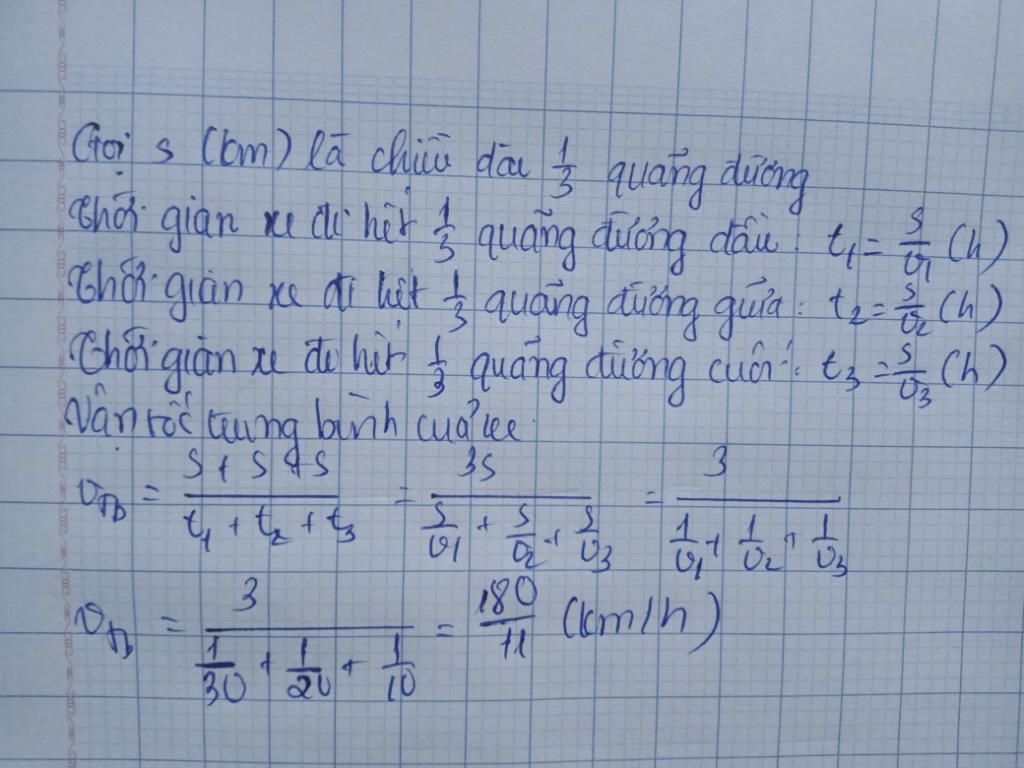 Gọi s (km) là chiều dài 1/3 quãng đường
Thời gian xe đi hết 1/3 quãng đường đầu: t₁ = s/v₁ (h)
Thời gian xe đi hết 1/3 quãng đường giữa: t₂ = s/v₂ (h)
Thời gian xe đi hết 1/3 quãng đường cuối: t₃ = s/v₃ (h)
Vận tốc trung bình của xe:
v_tb = (s + s + s)/(t₁ + t₂ + t₃) = 3s/(s/v₁ + s/v₂ + s/v₃) = 3/(1/v₁ + 1/v₂ + 1/v₃)
v_tb = 3/(1/30 + 1/20 + 1/10) = 180/11 (km/h)